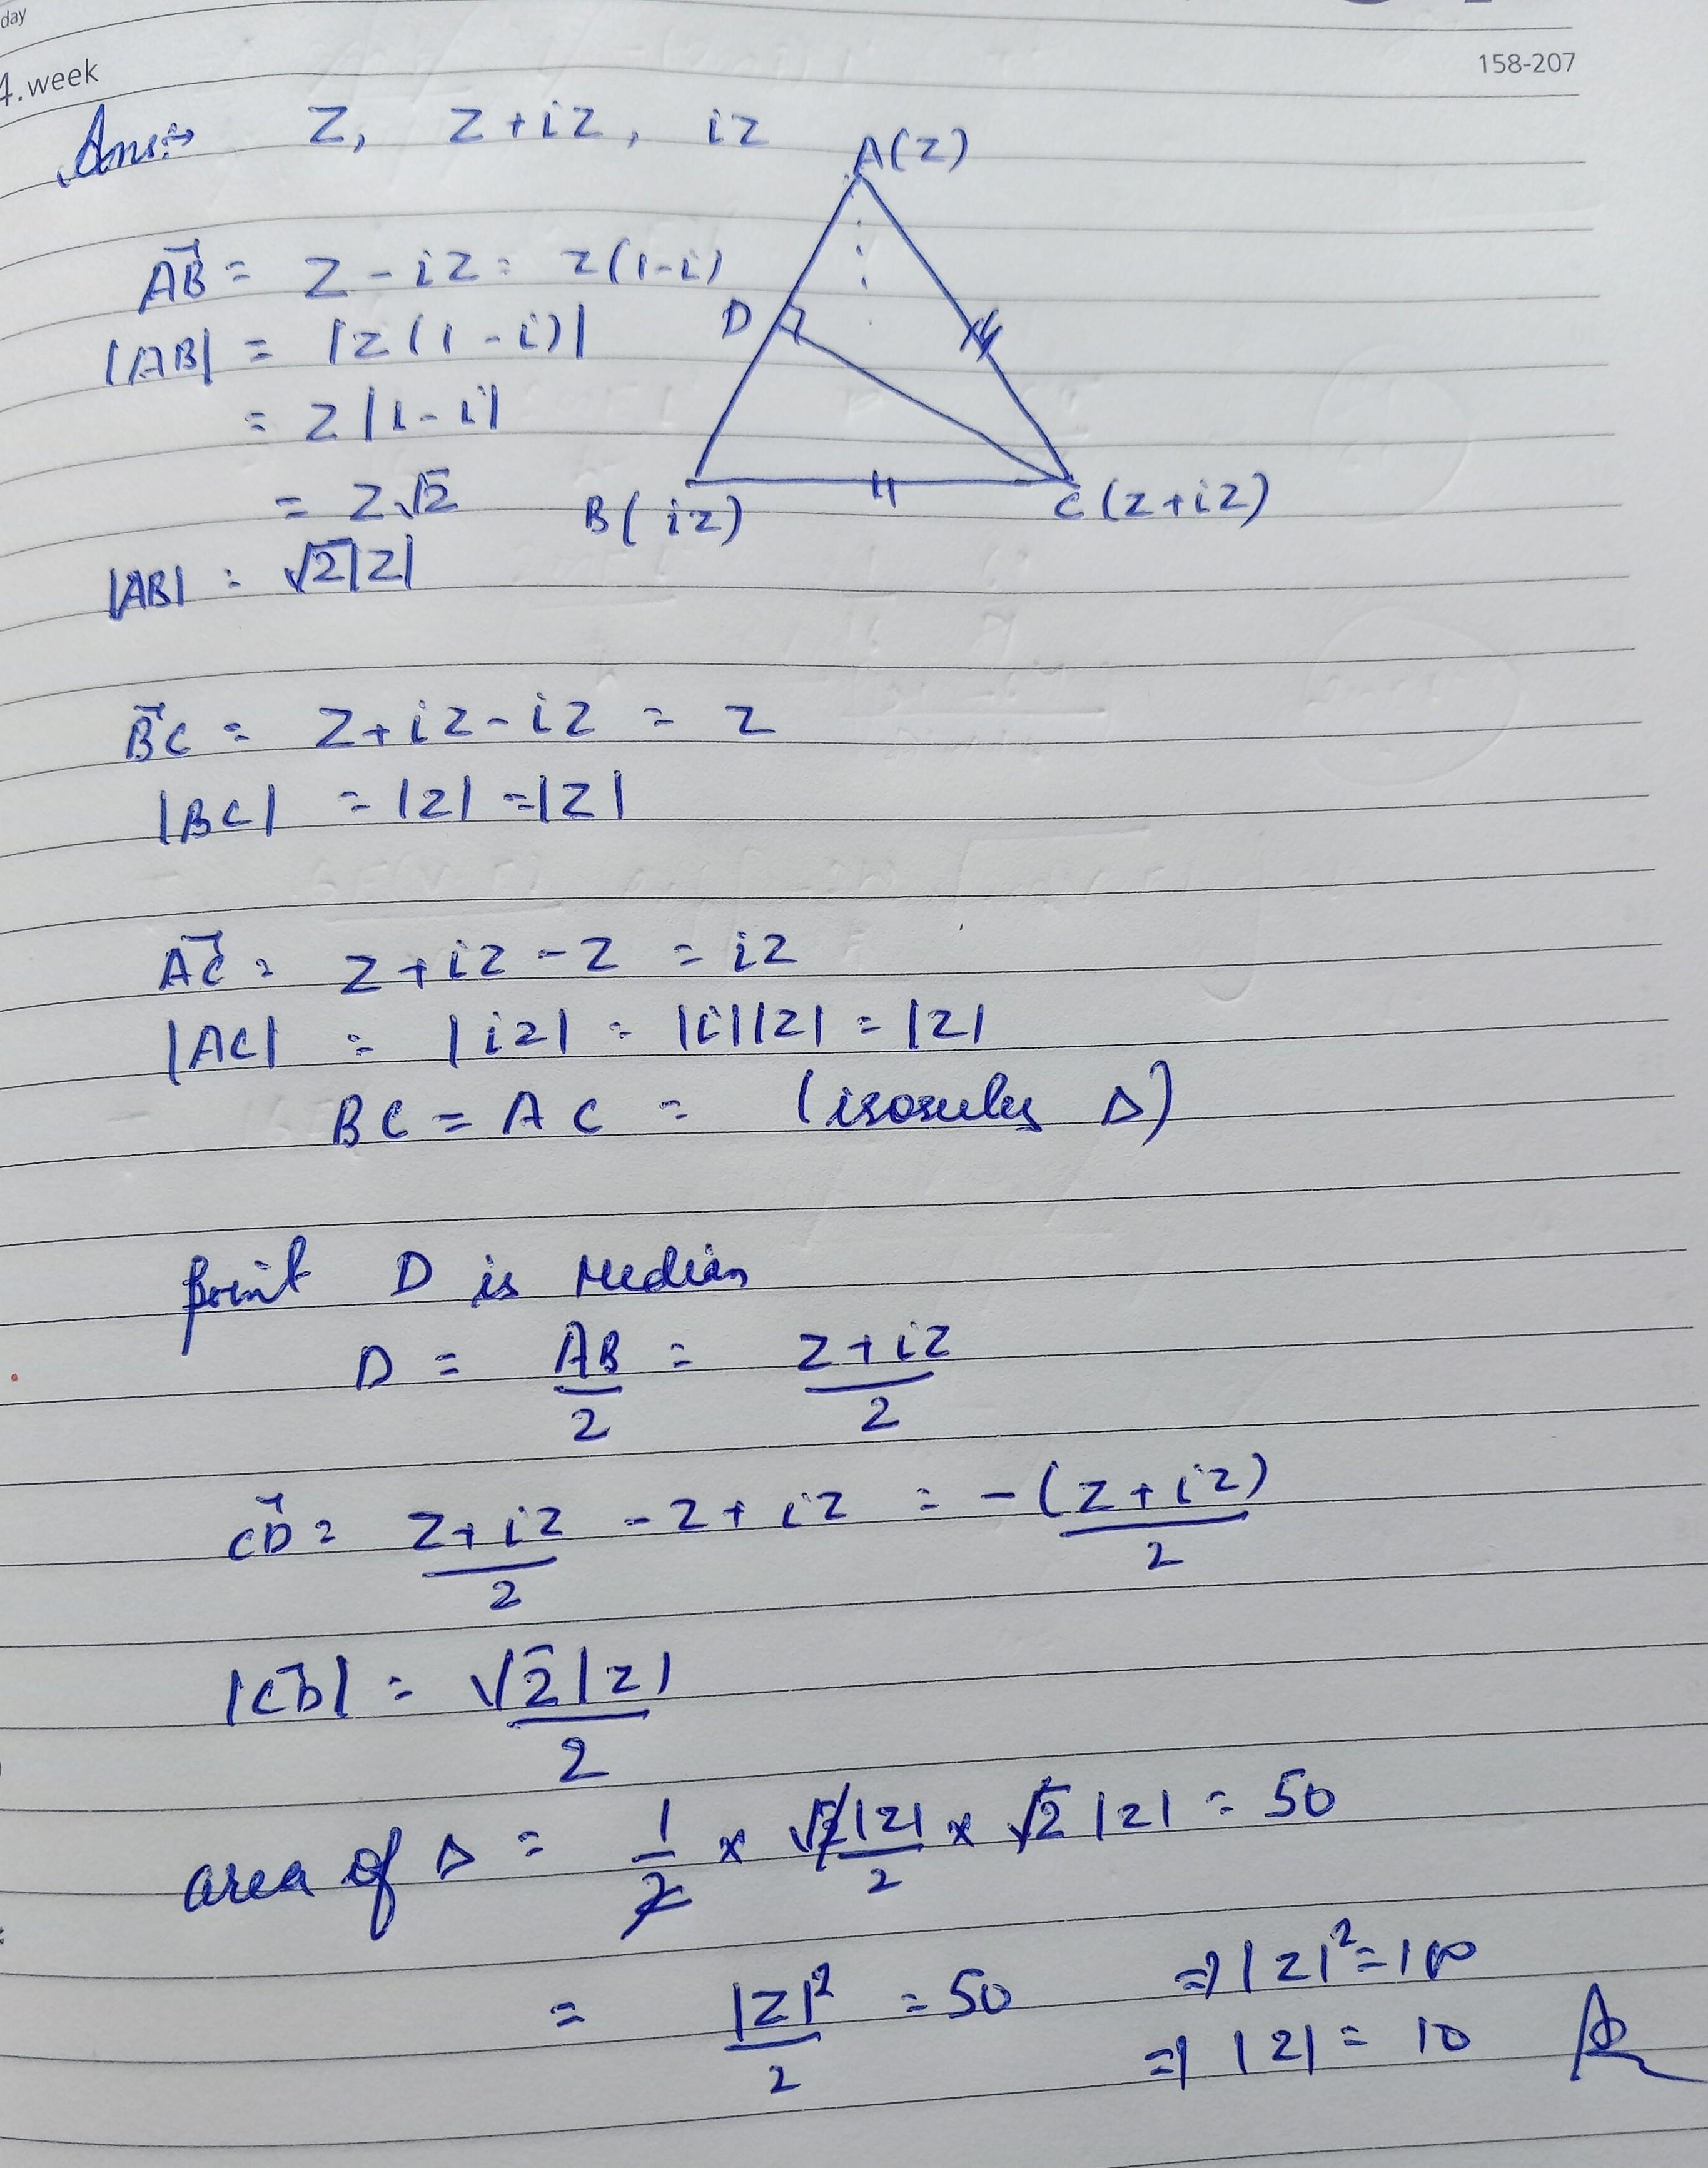 day
4.week
158-207
Ans:→ z, z+iz, iz
A(z)
AB = z - iz = z(1-i)
|AB| = |z(1-i)|
D
= z|1-i|
= z√2
B(iz)
C(z+iz)
|AB| = √2|z|
BC = z+iz-iz = z
|BC| = |z| = |z|
AC = z+iz-z = iz
|AC| = |iz| = |i||z| = |z|
BC = AC = (isosceles Δ)
point D is Median
D = AB/2 = z+iz/2
CD = z+iz/2 - z+iz = -(z+iz)/2
|CD| = √2|z|/2
area of Δ = 1/2 × √2|z|/2 × √2|z| = 50
= |z|²/2 = 50 ⇒ |z|² = 100
⇒ |z| = 10